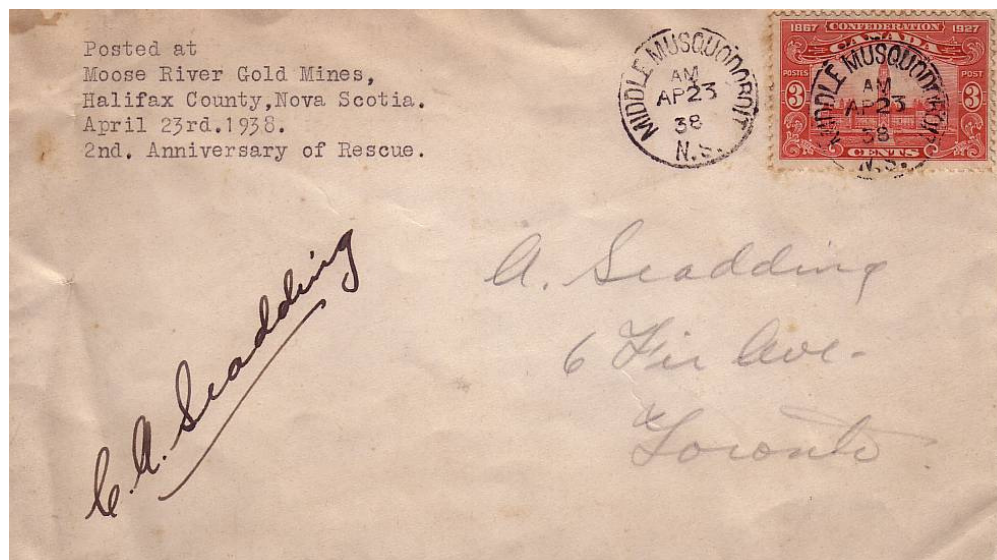 Posted at
Moose River Gold Mines,
Halifax County,Nova Scotia.
April 23rd.1938.
2nd. Anniversary of Rescue.
MIDDLE MUSQUODOBOIT
AM
AP 23
38
N.S.
1867 CONFEDERATION 1927
CANADA
POSTES POST
3 3
CENTS
MIDDLE MUSQUODOBOIT
AM
AP 23
38
N.S.
A. Scadding
6 Fir Ave.
Toronto
C. A. Scadding